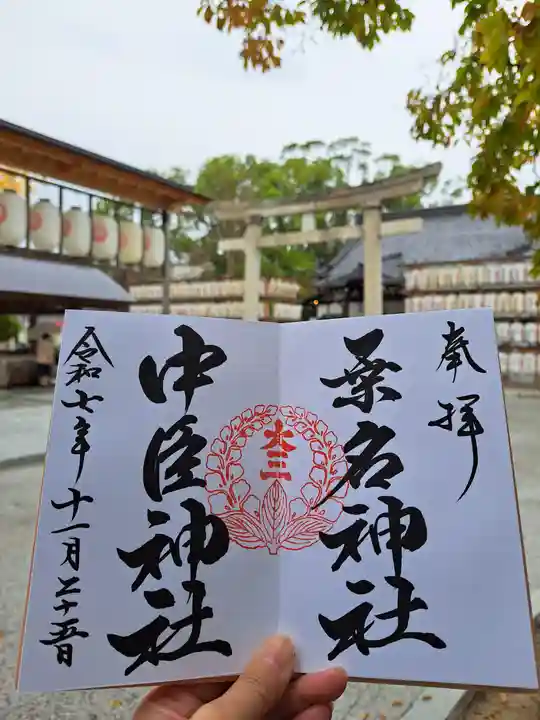 奉拝
桑名神社
三大
中臣神社
令和七年十一月二十五日